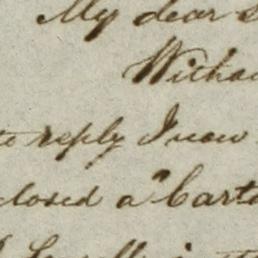 My dear
Withou
to reply I now
closed a Carte